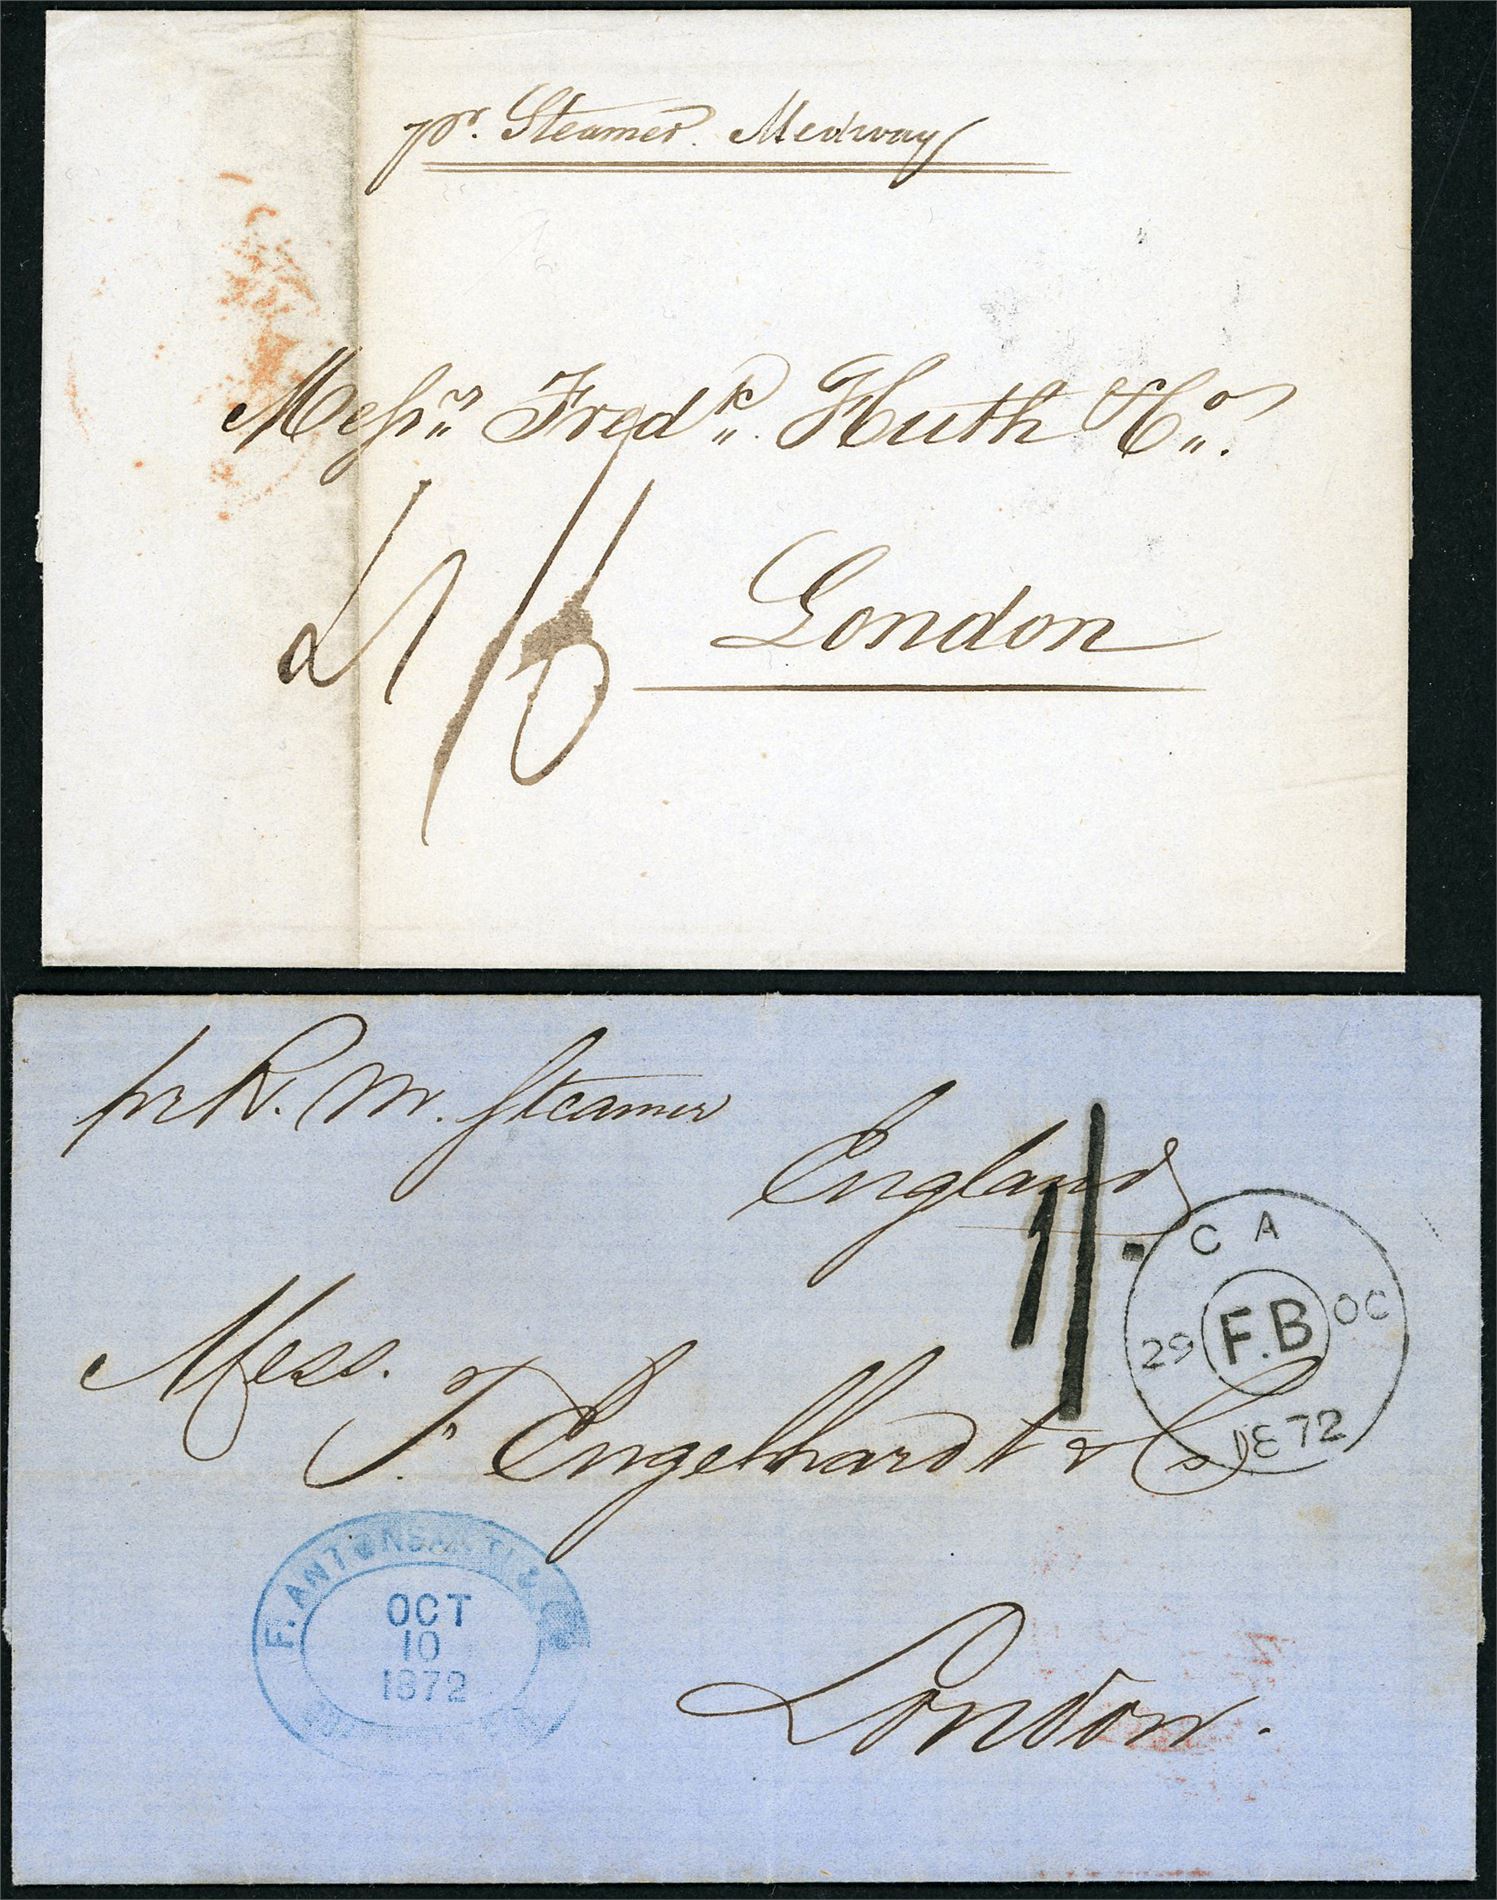 pr. Steamer Medway
Messrs Fredk. Huth & Co.
4/6
London
pr R. M. Steamer
England
1/.
C A
29 F.B OC
1872
Mess.
F. Engelhardt & Co
F. ANTONSANTI & Co
OCT
10
1872
London.